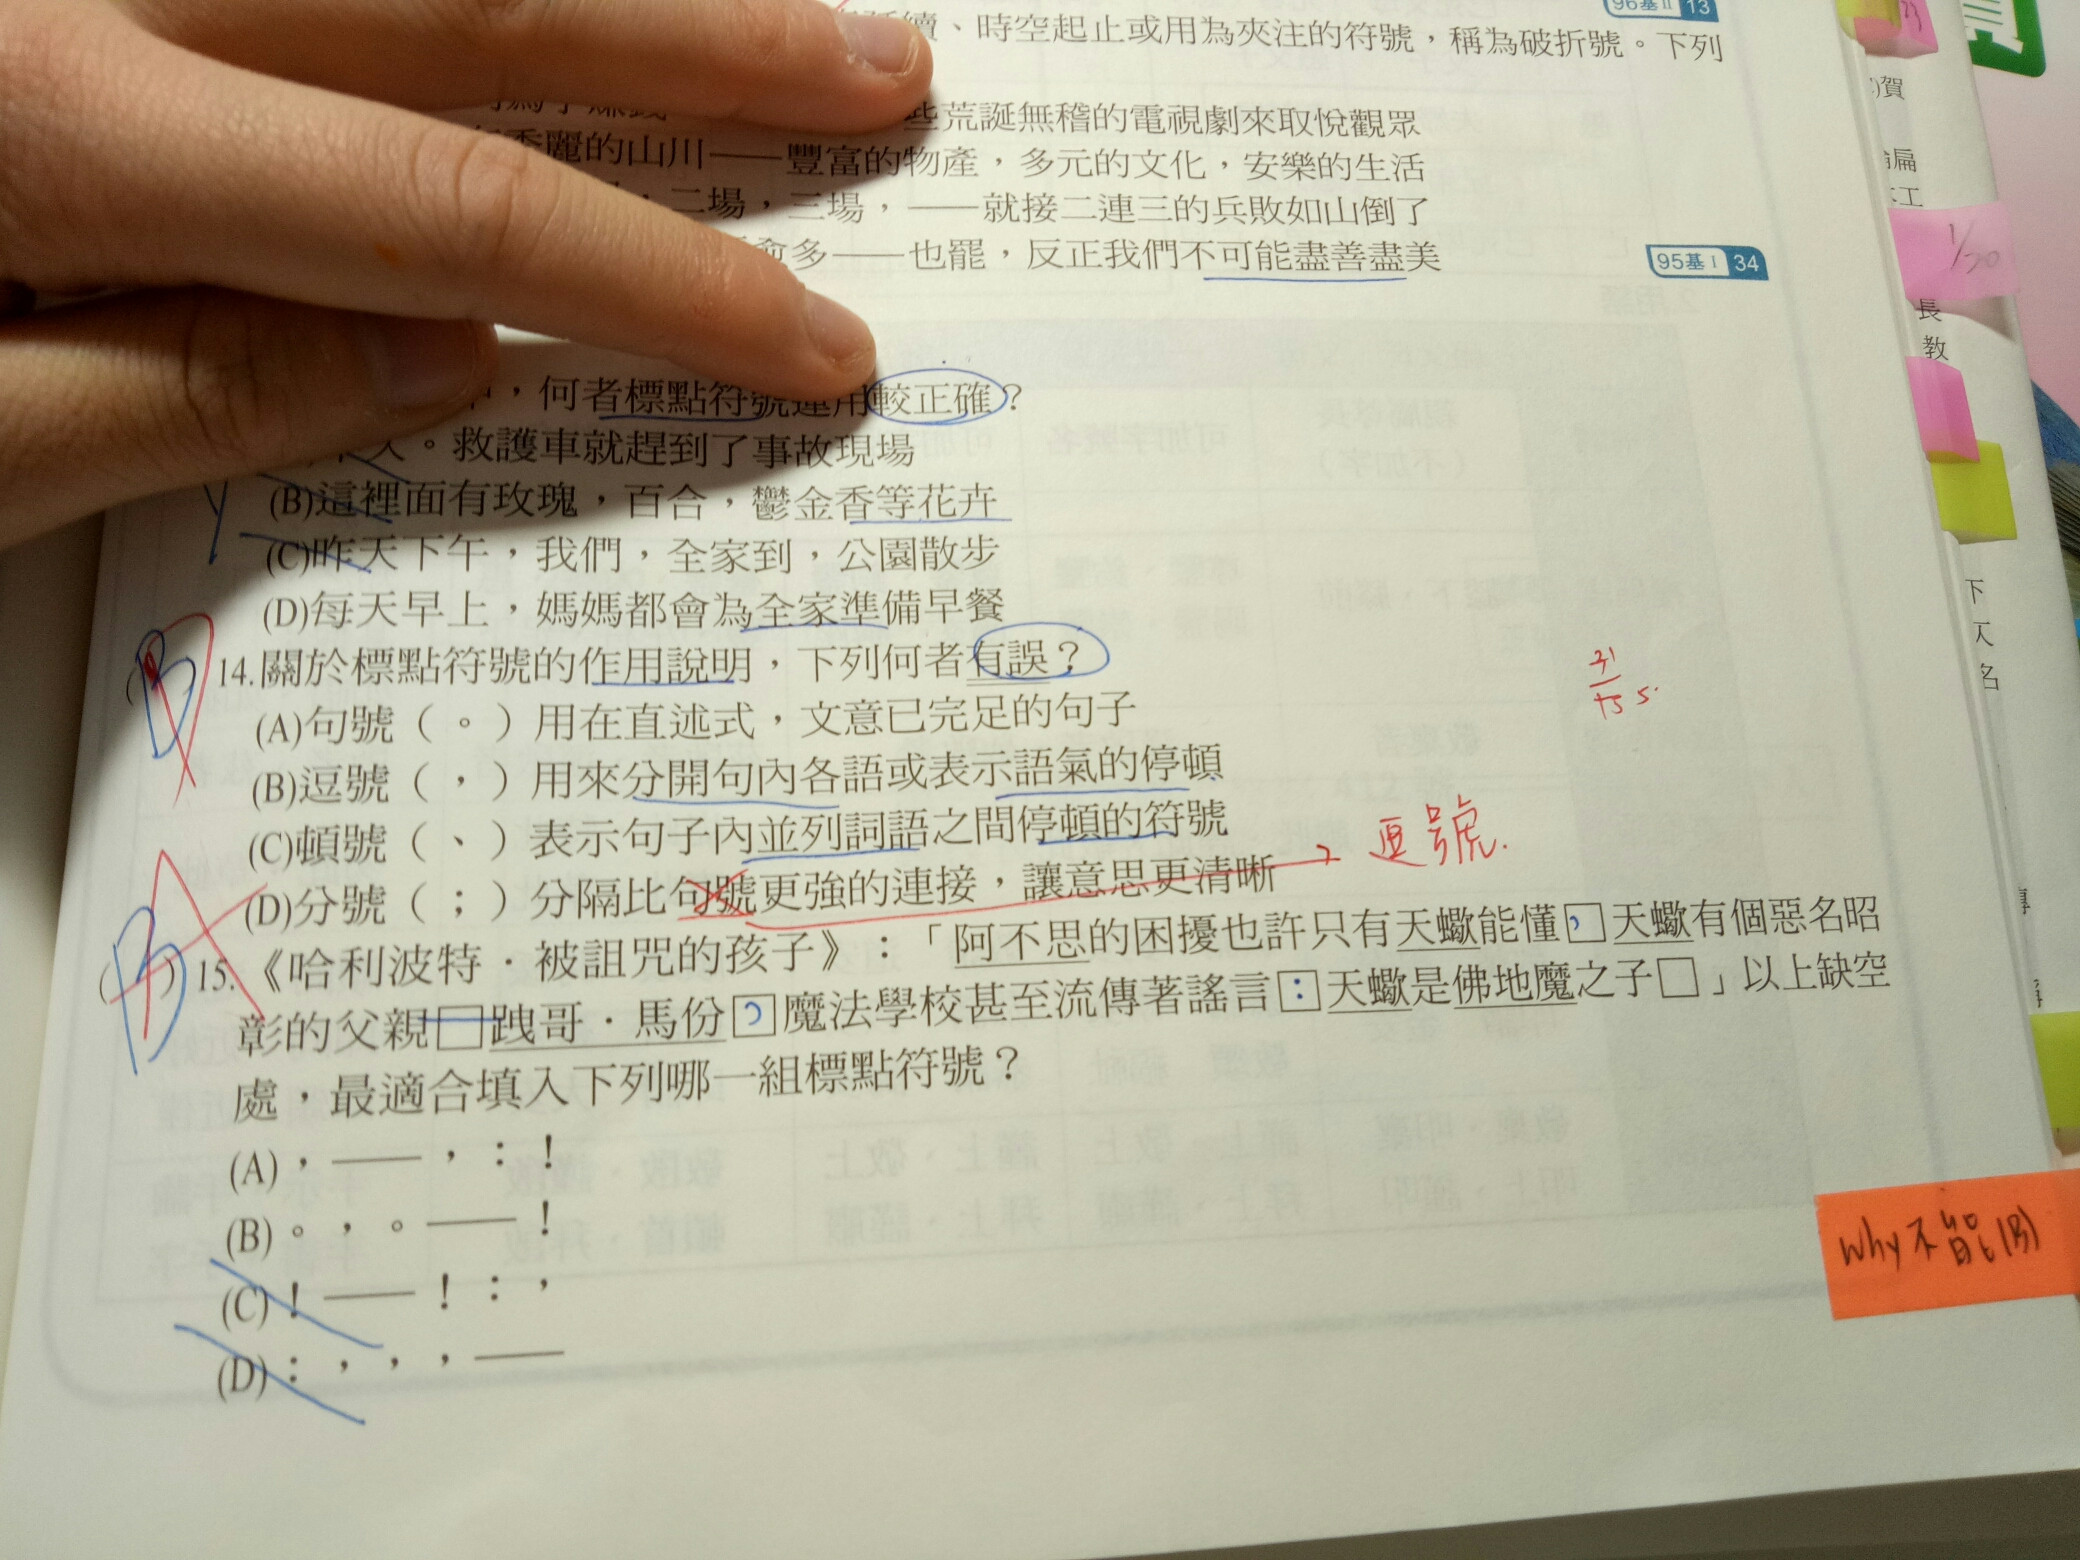 96基II 13
、時空起止或用為夾注的符號，稱為破折號。下列
些荒誕無稽的電視劇來取悅觀眾
麗的山川——豐富的物產，多元的文化，安樂的生活
二場，三場，——就接二連三的兵敗如山倒了
愈多——也罷，反正我們不可能盡善盡美
95基I 34
，何者標點符號運用較正確？
。救護車就趕到了事故現場
(B)這裡面有玫瑰，百合，鬱金香等花卉
(C)昨天下午，我們，全家到，公園散步
(D)每天早上，媽媽都會為全家準備早餐
B 14.關於標點符號的作用說明，下列何者有誤？
(A)句號（。）用在直述式，文意已完足的句子
(B)逗號（，）用來分開句內各語或表示語氣的停頓
(C)頓號（、）表示句子內並列詞語之間停頓的符號
(D)分號（；）分隔比句號更強的連接，讓意思更清晰
( B ) 15.《哈利波特．被詛咒的孩子》：「阿不思的困擾也許只有天蠍能懂□，天蠍有個惡名昭
彰的父親□跩哥．馬份□，魔法學校甚至流傳著謠言□：天蠍是佛地魔之子□」以上缺空
處，最適合填入下列哪一組標點符號？
(A)，——，：！
(B)。，。——！
(C)！——！：，
(D)：，，，——
why不能(B)
1/20
賀
扁
工
長
教
下
名